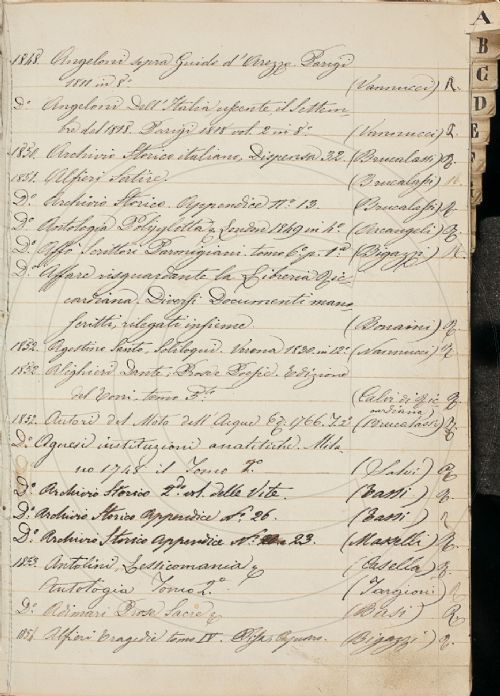 A
B
C
D
E
F
1848. Angeloni sopra Guido d'Arezzo. Parigi
1811 in 8.° (Vannucci) R.
D.° Angeloni Dell'Italia uscente il Settem-
bre del 1818. Parigi 1818 vol. 2 in 8.° (Vannucci) R.
1850. Archivio Storico italiano, Dispensa 32. (Brucalassi) R.
1851. Alfieri Satire. (Brucalassi) R.
D.° Archivio Storico. Appendice N.° 13. (Brucalassi) R.
D.° Antologia Poliglotta, Londra 1849 in 4.° (Arcangeli) R.
D.° Affò Scrittori Parmigiani. tomo 6.° p. 1.a (Bigazzi) R.
D.° Affare risguardante la Libreria Ric-
cardiana. Diversi Documenti mano-
scritti, rilegati insieme (Bonaini) R.
1852. Agostino Santo, Soliloqui. Verona 1830. in 12.° (Nannucci) R
1852. Alighieri Dante, Prose e Poesie. Edizione
del tomo 5.° (Calvi di Ric-
cardiana) R.
1852. Autori del Moto dell'Acque Ed. 1766. T. 2 (Brucalassi) R.
D.° Agnesi instituzioni analitiche Mila-
no 1748 il Tomo 2.° (Salvi) R.
D.° Archivio Storico 2.do vol. delle Vite. (Tassi) R.
D.° Archivio Storico Appendice N.° 26. (Tassi)
D.° Archivio Storico Appendice N.° 23. (Masselli) R.
1853. Antolini, Lessicomania (Casella) R.
Antologia Tomo 2.° (Targioni) R
D.° Adimari Prose Sacre (Bersi) R.
Alfieri Tragedie tomo IV. (Bigazzi) R.